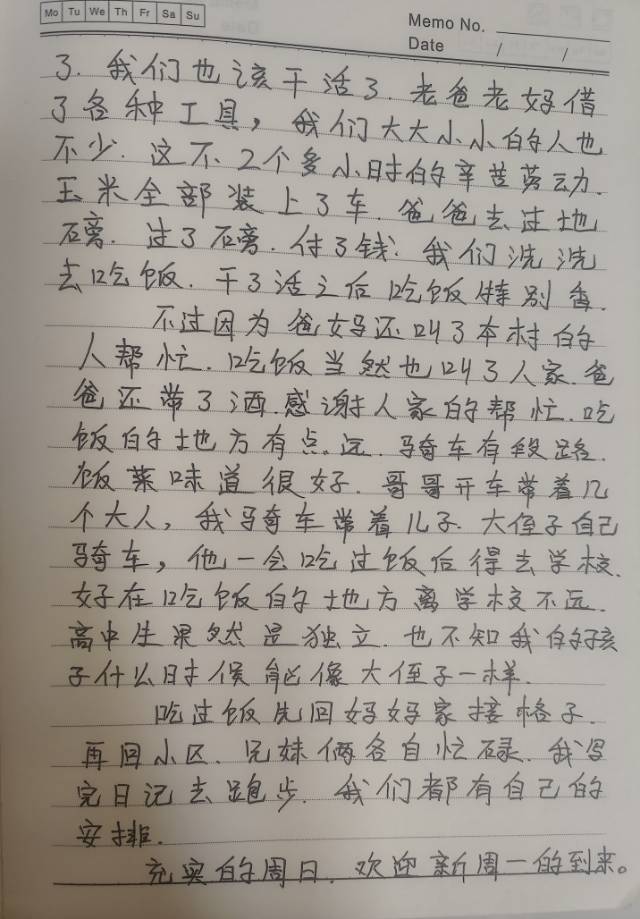 Mo Tu We Th Fr Sa Su
Memo No.
Date / /
了. 我们也该干活了. 老爸老妈借
了各种工具, 我们大大小小的人也
不少. 这不 2个多小时的辛苦劳动.
玉米全部装上了车. 爸爸去过地
磅. 过了磅. 付了钱. 我们洗洗
去吃饭. 干了活之后吃饭特别香.
不过因为爸妈还叫了本村的
人帮忙. 吃饭当然也叫了人家. 爸
爸还带了酒. 感谢人家的帮忙. 吃
饭的地方有点远. 骑车有段路.
饭菜味道很好. 哥哥开车带着几
个大人, 我骑车带着儿子. 大侄子自己
骑车, 他一会吃过饭后得去学校.
好在吃饭的地方离学校不远.
高中生果然是独立. 也不知我的孩
子什么时候能像大侄子一样.
吃过饭先回妈妈家接格子.
再回小区. 兄妹俩各自忙碌. 我写
完日记去跑步. 我们都有自己的
安排.
充实的周日. 欢迎新周一的到来。